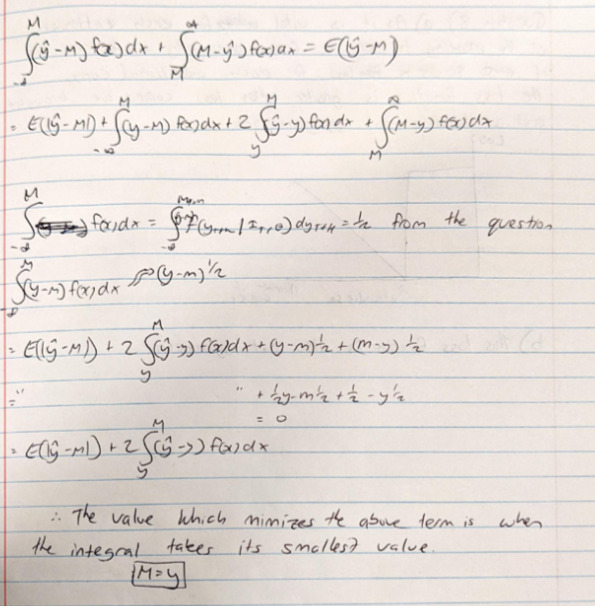 ∫_{-∞}^{M} (ŷ-M) f(x) dx + ∫_{M}^{∞} (M-ŷ) f(x) dx = E(|ŷ-M|)
= E(|ŷ-M|) + ∫_{-∞}^{M} (y-M) f(x) dx + 2 ∫_{y}^{M} (ŷ-y) f(x) dx + ∫_{M}^{∞} (M-y) f(x) dx
∫_{-∞}^{M} f(x) dx = ∫ f(y_{T+h} | I_T, θ) dy_{T+h} = 1/2 from the question
∫_{-∞}^{M} (y-M) f(x) dx ⇒ (y-m) 1/2
= E(|ŷ-M|) + 2 ∫_{y}^{M} (ŷ-y) f(x) dx + (y-m) 1/2 + (m-y) 1/2
= " " + 1/2 y - m 1/2 + 1/2 - y 1/2
= 0
= E(|ŷ-M|) + 2 ∫_{y}^{M} (ŷ-y) f(x) dx
∴ The value which minimizes the above term is when
the integral takes its smallest value.
M=y